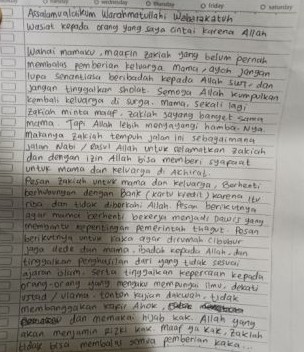 Assalamualaikum Warahmatullahi Wabarakatuh
Wasiat kepada orang yang saya cintai karena Allah
Wahai mamaku, maafin zakiah yang belum pernah
membalas pemberian keluarga. Mama, ayah jangan
lupa senantiasa beribadah kepada Allah SWT. dan
jangan tinggalkan sholat. Semoga Allah kumpulkan
kembali keluarga di surga. Mama, sekali lagi
zakiah minta maaf. zakiah sayang banget sama
mama Tapi Allah lebih menyayangi hamba-Nya.
Makanya zakiah tempuh jalan ini sebagaimana
jalan Nabi / Rasul Allah untuk selamatkan zakiah
dan dengan izin Allah bisa memberi syafaat
untuk mama dan keluarga di akhirat.
Pesan zakiah untuk mama dan keluarga, Berhenti
berhubungan dengan Bank (kartu kredit) karena itu
riba dan tidak diberkahi Allah. Pesan berikutnya
agar mama berhenti bekerja menjadi Dawis yang
membantu kepentingan pemerintah thogut. Pesan
berikutnya untuk kaka agar dirumah Cibubur
jaga dede dan mama, ibadah kepada Allah, dan
tinggalkan penghasilan dari yang tidak sesuai
ajaran Islam. Serta tinggalkan kepercayaan kepada
orang-orang yang mengaku mempunyai ilmu, dekati
ustad / ulama. tonton kajian dakwah, tidak
membanggakan kafir Ahok
dan memakai hijab kak. Allah yang
akan menjamin rizki kak. maaf ya kak, zakiah
tidak bisa membalas semua pemberian kaka...